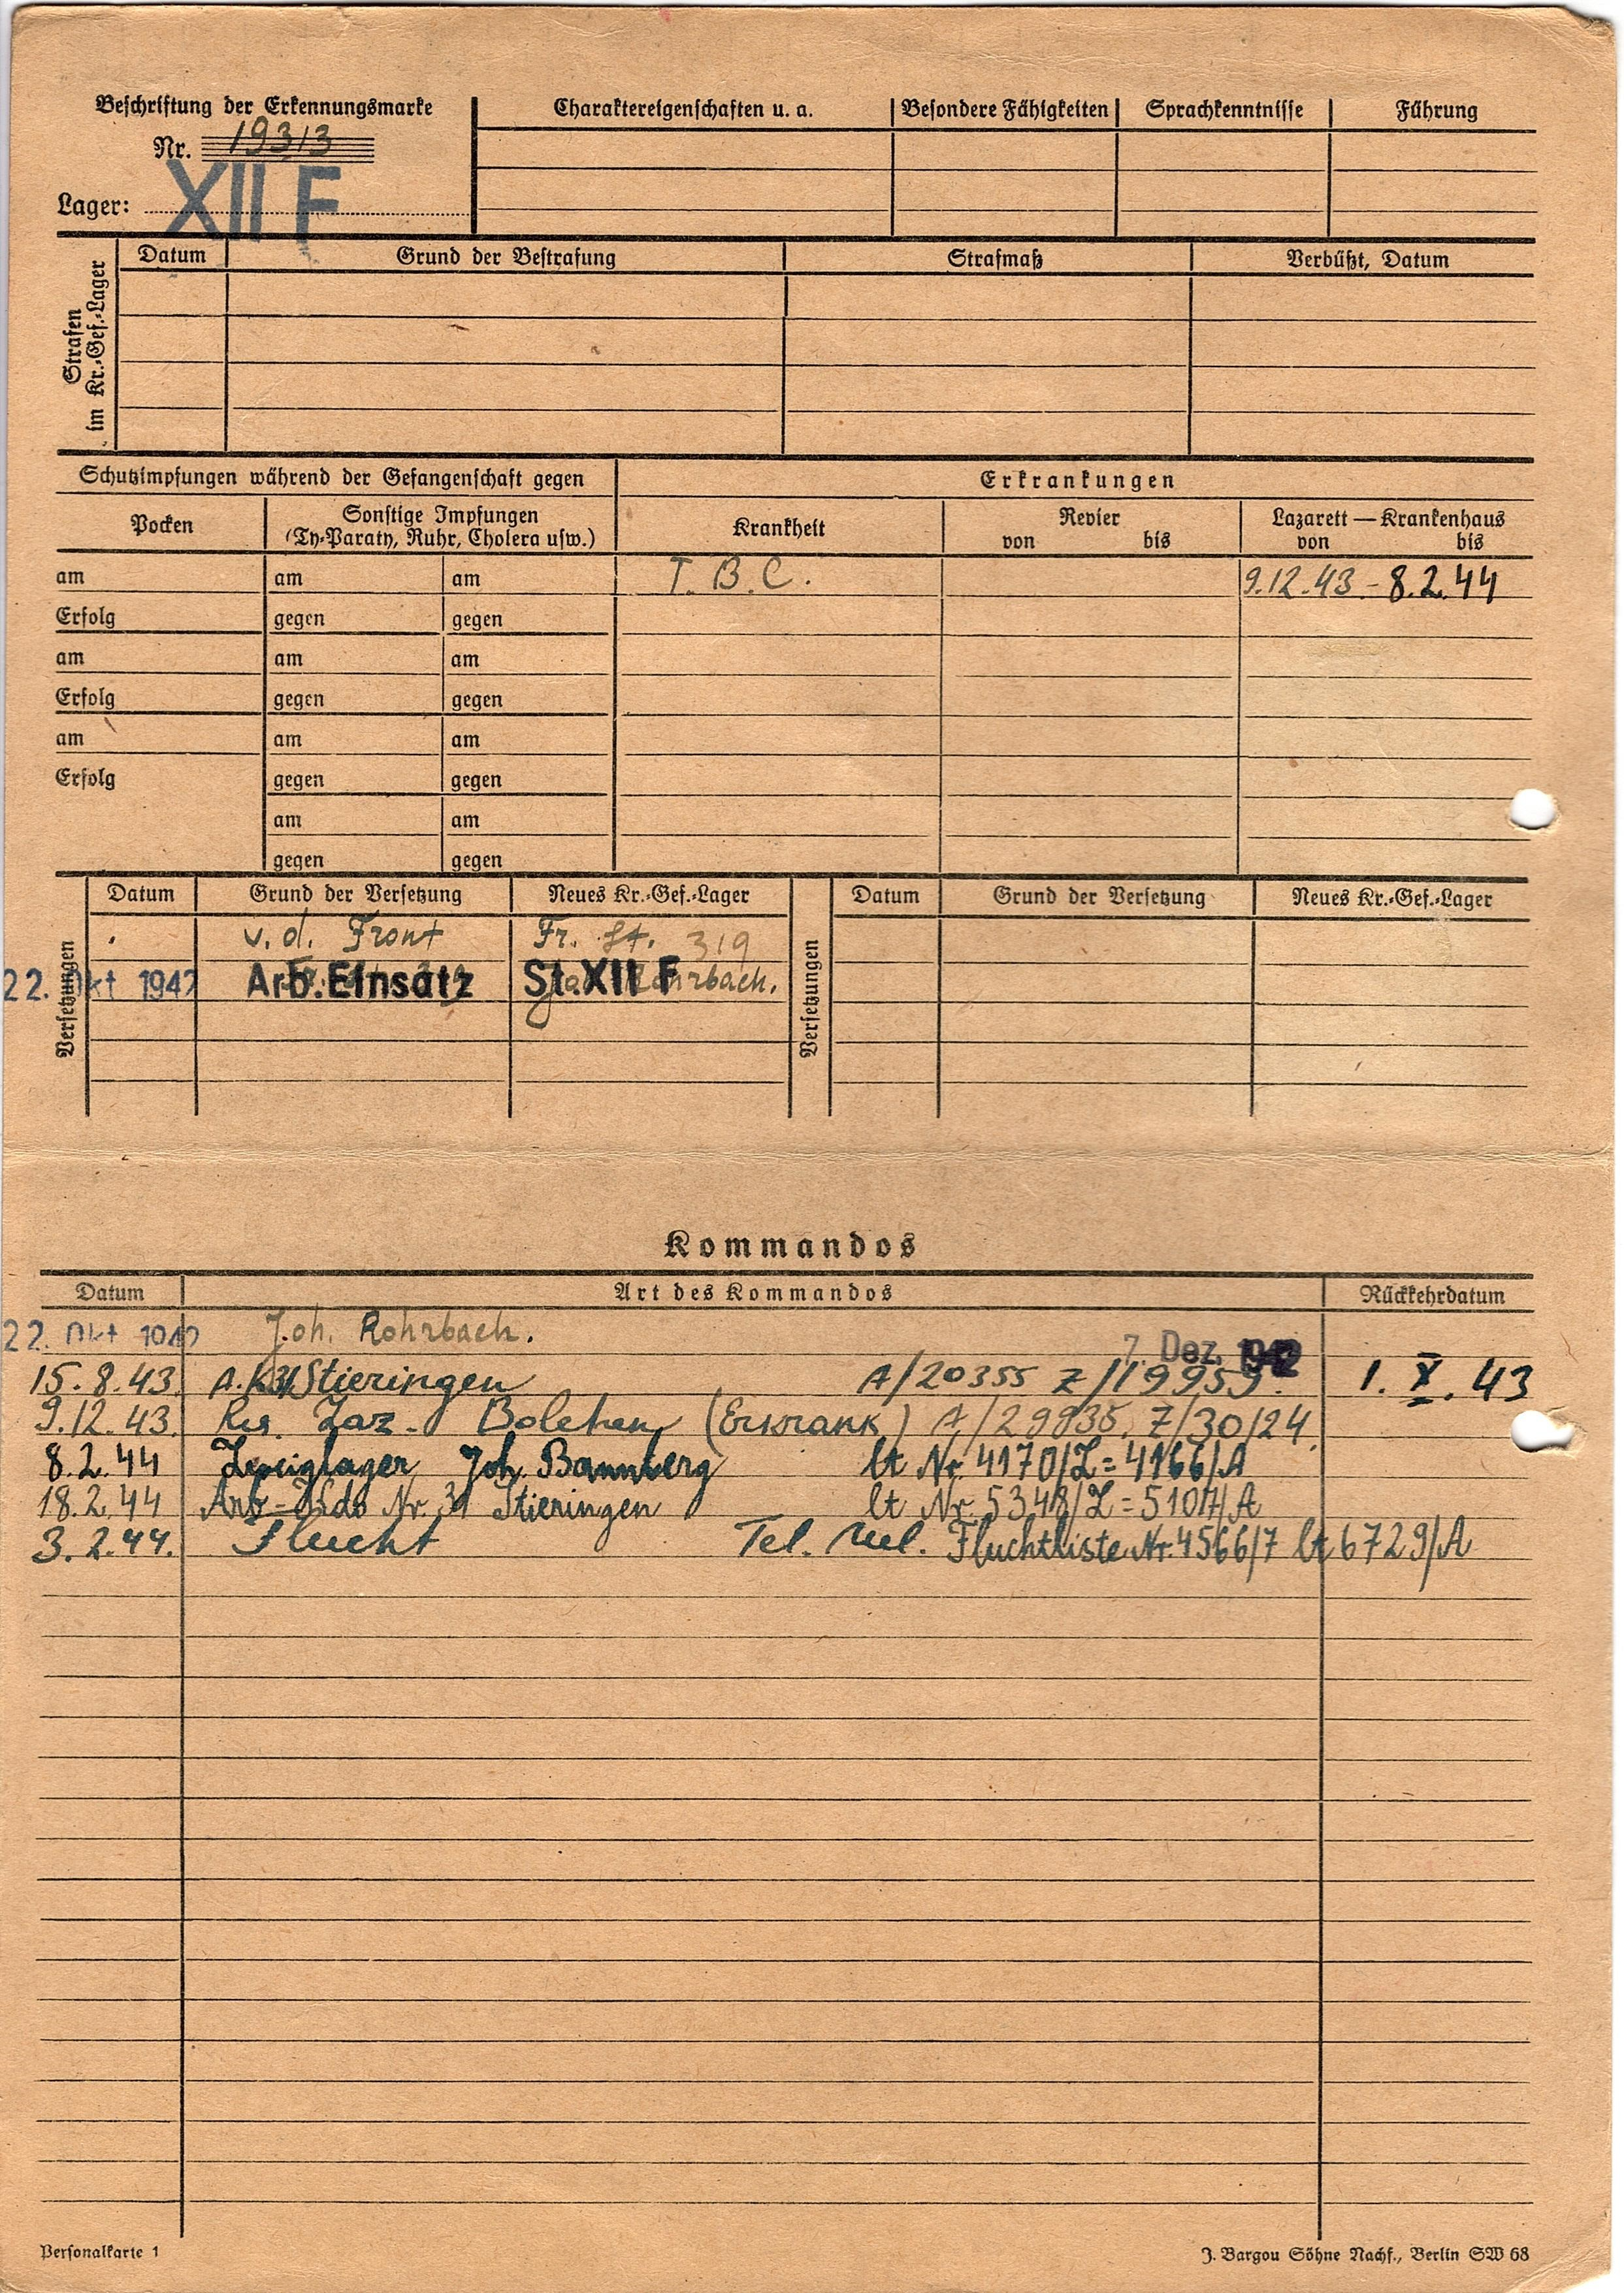 Beschriftung der Erkennungsmarke
Nr. 19313
Lager: XII F
Charaktereigenschaften u. a. Besondere Fähigkeiten Sprachkenntnisse Führung
Strafen im Kr.-Gef.-Lager
Datum Grund der Bestrafung Strafmaß Verbüßt, Datum
Schutzimpfungen während der Gefangenschaft gegen
Erkrankungen
Pocken
Sonstige Impfungen
(Ty-Paraty, Ruhr, Cholera usw.)
Krankheit
Revier
von bis
Lazarett — Krankenhaus
von bis
am am am T. B. C. 9.12.43 - 8.2.44
Erfolg gegen gegen
am am am
Erfolg gegen gegen
am am am
Erfolg gegen gegen
am am
gegen gegen
Versetzungen
Datum Grund der Versetzung Neues Kr.-Gef.-Lager
v. d. Front Fr. St. 319
22. Okt 1942 Arb. Einsatz St. XII F Rohrbach.
Versetzungen
Datum Grund der Versetzung Neues Kr.-Gef.-Lager
Kommandos
Datum Art des Kommandos Rückkehrdatum
22. Okt 1942 Joh. Rohrbach. 7. Dez. 1942
15.8.43. A.K. 31 Stieringen A/20355 Z/19959. 1. X. 43
9.12.43. Res. Laz. Bolchen (Erkrank) A/29835, Z/30124.
8.2.44 Zweiglager Joh. Bannberg lt Nr. 4170/Z = 4166/A
18.2.44 Arb=Kdo Nr. 31 Stieringen lt Nr. 5348/Z = 5107/A
3.2.44. Flucht Tel. Mel. Fluchtliste Nr. 4566/7 lt 6729/A
Personalkarte 1
J. Bargou Söhne Nachf., Berlin SW 68